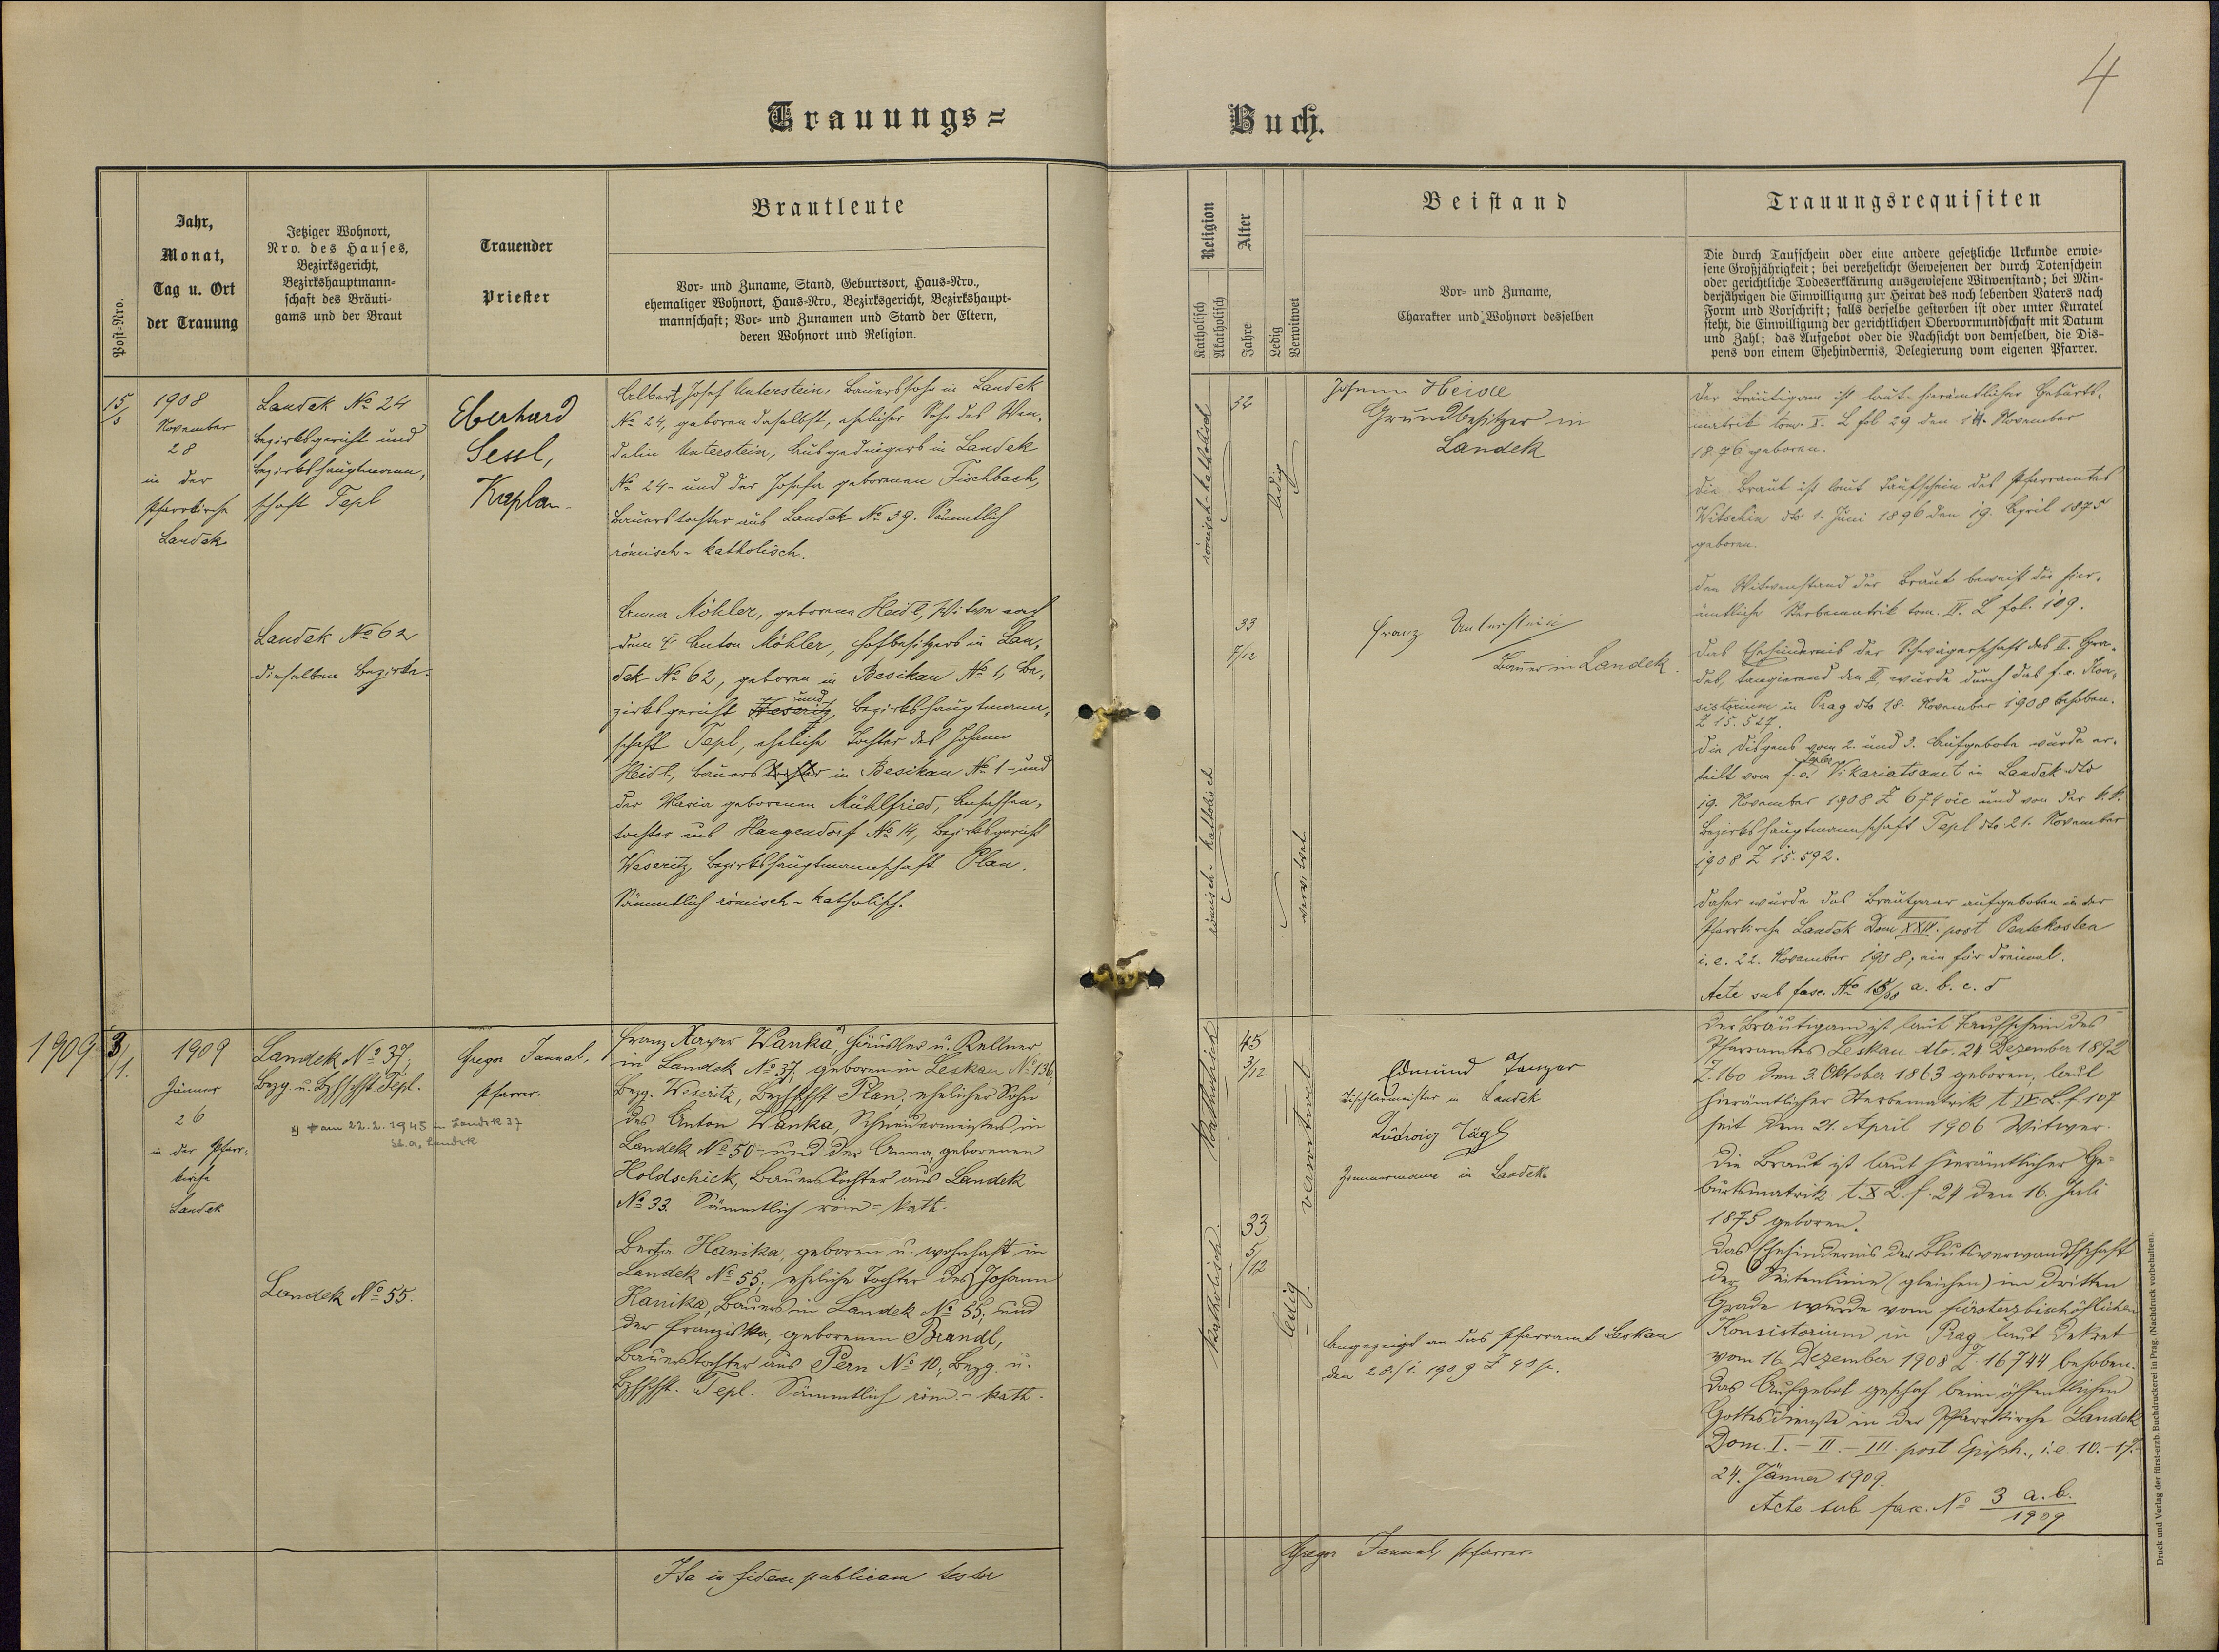 4
Trauungs=
Buch.
Post-Nro.
Jahr,
Monat,
Tag u. Ort
der Trauung
Jetziger Wohnort,
Nro. des Hauses,
Bezirksgericht,
Bezirkshauptmann-
schaft des Bräuti-
gams und der Braut
Trauender
Priester
Brautleute
Vor- und Zuname, Stand, Geburtsort, Haus-Nro.,
ehemaliger Wohnort, Haus-Nro., Bezirksgericht, Bezirkshaupt-
mannschaft; Vor- und Zunamen und Stand der Eltern,
deren Wohnort und Religion.
Religion
Katholisch
Akatholisch
Alter
Jahre
Ledig
Verwitwet
Beistand
Vor- und Zuname,
Charakter und Wohnort desselben
Trauungsrequisiten
Die durch Taufschein oder eine andere gesetzliche Urkunde erwie-
sene Großjährigkeit; bei verehelicht Gewesenen der durch Totenschein
oder gerichtliche Todeserklärung ausgewiesene Witwenstand; bei Min-
derjährigen die Einwilligung zur Heirat des noch lebenden Vaters nach
Form und Vorschrift; falls derselbe gestorben ist oder unter Kuratel
steht, die Einwilligung der gerichtlichen Obervormundschaft mit Datum
und Zahl; das Aufgebot oder die Nachsicht von demselben, die Dis-
pens von einem Ehehindernis, Delegierung vom eigenen Pfarrer.
1908
November
28
in der
Pfarrkirche
Landek
Landek No 24
Bezirksgericht und
Bezirkshauptmann-
schaft Tepl
Eberhard
Sessl,
Kaplan.
Albert Josef Unterstein, Bauerssohn in Landek
No 24, geboren daselbst, ehelicher Sohn des Wen-
delin Unterstein, Ausgedingers in Landek
No 24 und der Josefa geborenen Fischbach,
Bauerstochter aus Landek No 39. Sämmtlich
römisch-katholisch.
römisch-katholisch
32
ledig
Johann Heidl
Grundbesitzer in
Landek
Der Bräutigam ist laut hierämtlicher Geburts-
matrik tom. X. L fol 29 den 14. November
1876 geboren.
Die Braut ist laut Taufschein des Pfarramtes
Witschin dto 1. Juni 1896 den 19. April 1875
geboren.
Den Witwenstand der Braut beweist die hier-
ämtliche Sterbematrik tom. IV. L fol. 109.
Das Ehehindernis der Schwägerschaft des II. Gra-
des, tangierend den III, wurde durch das f. e. Kon-
sistorium in Prag dto 18. November 1908 behoben.
Z 15.527.
Die Dispens vom 2. und 3. Aufgebote wurde er-
teilt vom f. e. Tepler Vikariatsamt in Landek dto
19. November 1908 Z 674 vic und von der k. k.
Bezirkshauptmannschaft Tepl dto 21. November
1908 Z 15.592.
Daher wurde das Brautpaar aufgeboten in der
Pfarrkirche Landek Dom XXIV. post Pentekosten
i. e. 22. November 1908, ein für dreimal.
Acte sub fasc. No 15/08 a. b. c. d
Landek No 62
dieselben Bezirke.
Anna Köhler, geborene Heidl, Witwe nach
dem † Anton Köhler, Hofbesitzers in Lan-
dek No 62, geboren in Besikau No 1, Be-
zirksgericht Weseritz und Bezirkshauptmann-
schaft Tepl, eheliche Tochter des Johann
Heidl, Bauers in Besikau No 1 und
der Maria geborenen Mühlfried, Ansassen-
tochter aus Hangendorf No 14, Bezirksgericht
Weseritz, Bezirkshauptmannschaft Plan.
Sämmtlich römisch-katholisch.
römisch-katholisch
33
7/12
verwitwet
Franz Unterstein
Bauer in Landek
1909
3/1.
1909
Jänner
26
in der Pfarr-
kirche
Landek
Landek No 37,
Bezg. u. Bzhschft Tepl.
am 22.2.1945 in Landek 37
St. A. Landek
Gregor
Pfarrer.
Franz Xaver Wanka, Häusler u. Kellner
in Landek No 37, geboren in Leskau No 136,
Bezg. Weseritz, Bezhschft Plan, ehelicher Sohn
des Anton Wanka, Schneidermeisters in
Landek No 50 und der Anna, geborenen
Holdschick, Bauerstochter aus Landek
No 33. Sämmtlich röm-kath.
Katholisch
45
3/12
verwitwet
Edmund Tanzer
Tischlermeister in Landek
Ludwig Lägl
Zimmermann in Landek.
Der Bräutigam ist laut Taufschein des
Pfarramtes Leskau dto. 24. Dezember 1892
Z. 160 den 3. Oktober 1863 geboren, laut
hierämtlicher Sterbematrik t IV. L. f. 107
seit dem 21. April 1906 Witwer.
Die Braut ist laut hierämtlicher Ge-
burtsmatrik t. X L. f. 24 den 16. Juli
1875 geboren.
Das Ehehindernis der Blutsverwandtschaft
der Seitenlinie (gleichen) im dritten
Grade wurde vom fürsterzbischöflichen
Konsistorium in Prag laut Dekret
vom 16. Dezember 1908 Z. 16744 behoben.
Das Aufgebot geschah beim öffentlichen
Gottesdienste in der Pfarrkirche Landek
Dom. I. - II. - III. post Epiph., i. e. 10.-17.-
24. Jänner 1909.
Acte sub fasc. No 3 a. b.
1909
Landek No 55.
Berta Hanika, geboren u. wohnhaft in
Landek No 55, eheliche Tochter des Johann
Hanika, Bauers in Landek No 55, und
der Franziska, geborenen Brandl,
Bauerstochter aus Pern No 10, Bezg. u.
Bzhschft. Tepl. Sämmtlich röm.-kath.
Katholisch
33
5/12
ledig
Angezeigt an das Pfarramt Leskau
den 28./1. 1909 Z 40 p.
Ita in fidem publicam testor
Gregor
Pfarrer.
Druck und Verlag der fürst-erzb. Buchdruckerei in Prag. (Nachdruck vorbehalten).